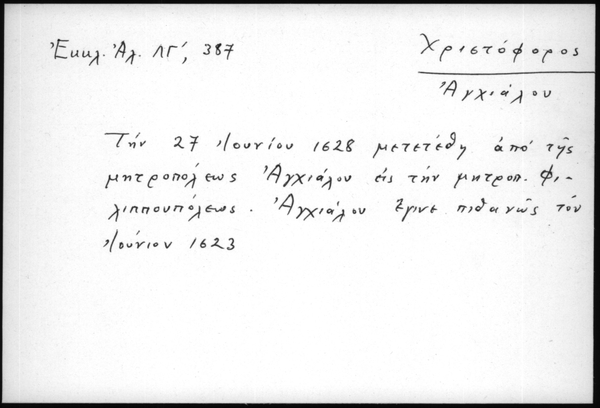 Ἐκκλ. Ἀλ. ΛΓ´, 387
Χριστόφορος
Ἀγχιάλου
Τήν 27 Ἰουνίου 1628 μετετέθη ἀπό τῆς
μητροπόλεως Ἀγχιάλου εἰς τήν μητροπ. Φι-
λιππουπόλεως. Ἀγχιάλου ἔγινε πιθανῶς τόν
Ἰούνιον 1623